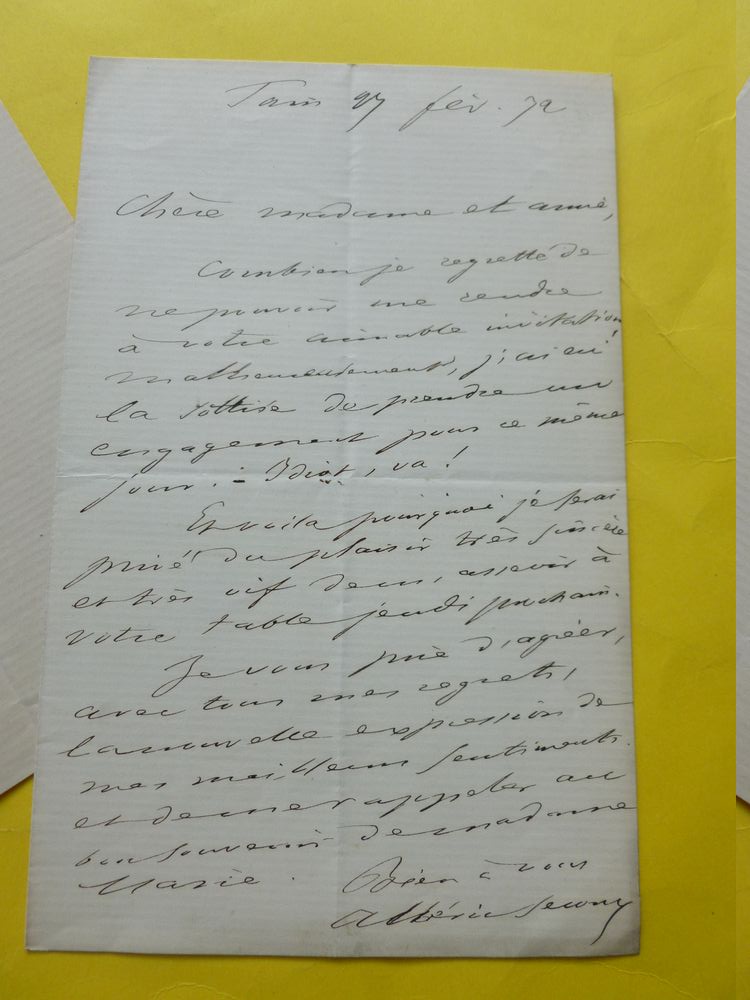 Paris 27 fév. 72
Chère madame et amie,
Combien je regrette de
ne pouvoir me rendre
à votre aimable invitation
malheureusement, j'ai eu
la sottise de prendre un
engagement pour ce même
jour. - Idiot, va!
Et voila pourquoi je serai
privé du plaisir très sincère
et très vif de m'asseoir à
votre table jeudi prochain.
Je vous prie d'agréer,
avec tous mes regrets,
la nouvelle expression de
mes meilleurs sentiments
et de me rappeler au
bon souvenir de madame
Marie. Bien à vous
Albéric Second